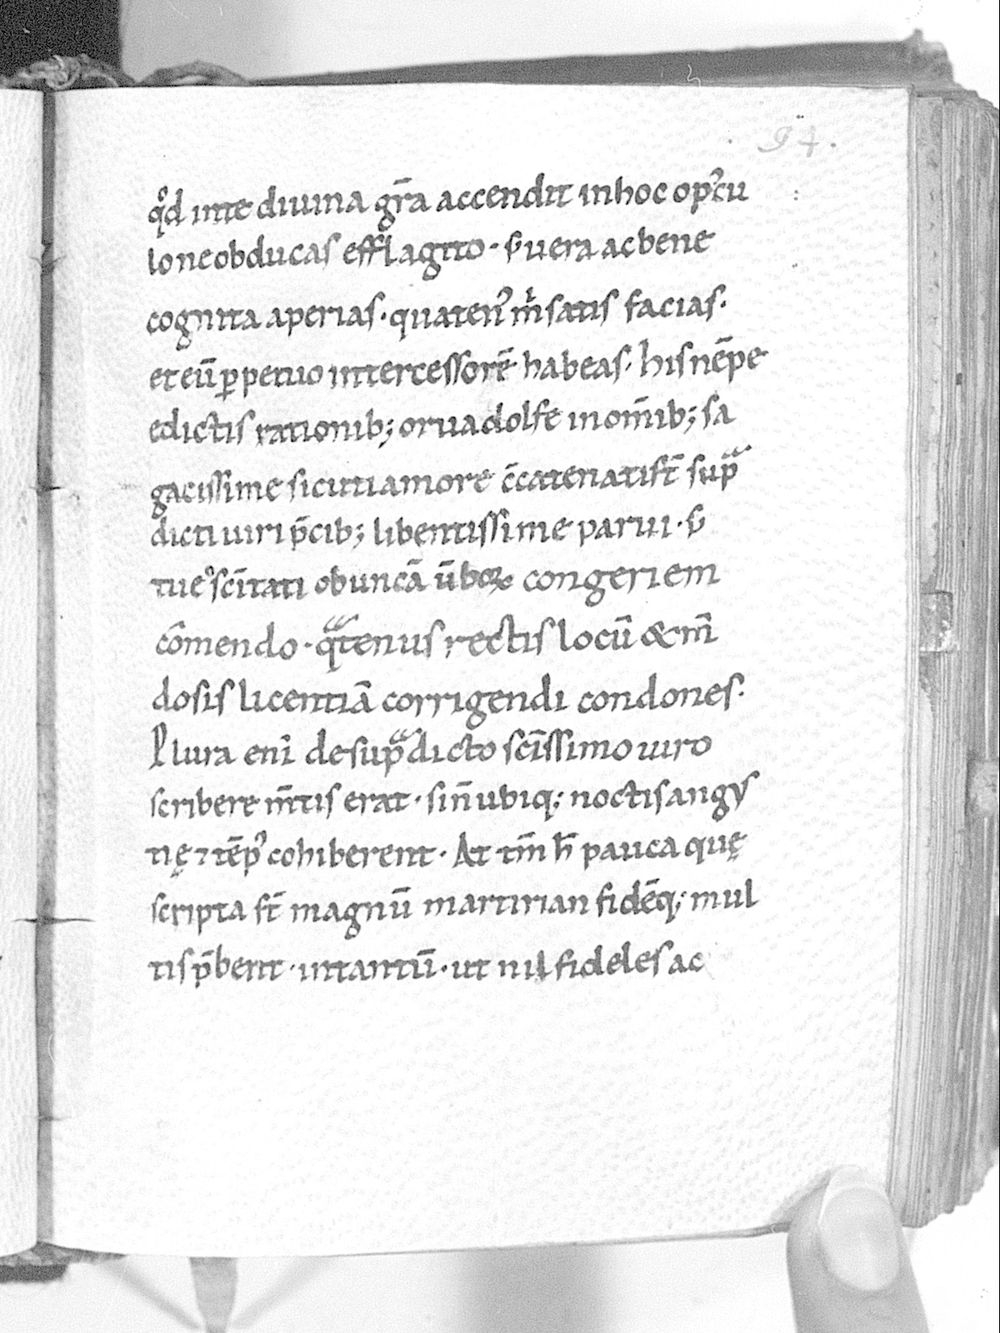 94.
qͦd inte diuina gr̄a accendit inhoc op̄cu
lo neobducas efflagito · s; uera ac bene
cognita aperias · quaten᷒ m̊ satis facias ·
et eū ꝑpetuo intercessorē habeas · his nēpe
edictis rationib; oruadolfe in om̄ib; sa
gacissime sicuti amore c̄catenatis st̄ sup̄
dicti uiri p̄cib; libentissime parui · s;
tue sc̄itati obuncā ūboꝝ congeriem
c̄omendo · qᷓtenus rectis locū & m̄
dosis licentiā corrigendi condones ·
Plura eni̅ de sup̄dicto sc̄issimo uiro
scribere m̄tis erat · sin̄ ubiq; noctis angus
tię ⁊ tēp᷒ cohiberent · At tm̄ h̄ pauca quę
scripta st̄ magnū martirian fidēq; mul
tis p̄bent · intantū · ut nil fideles ac